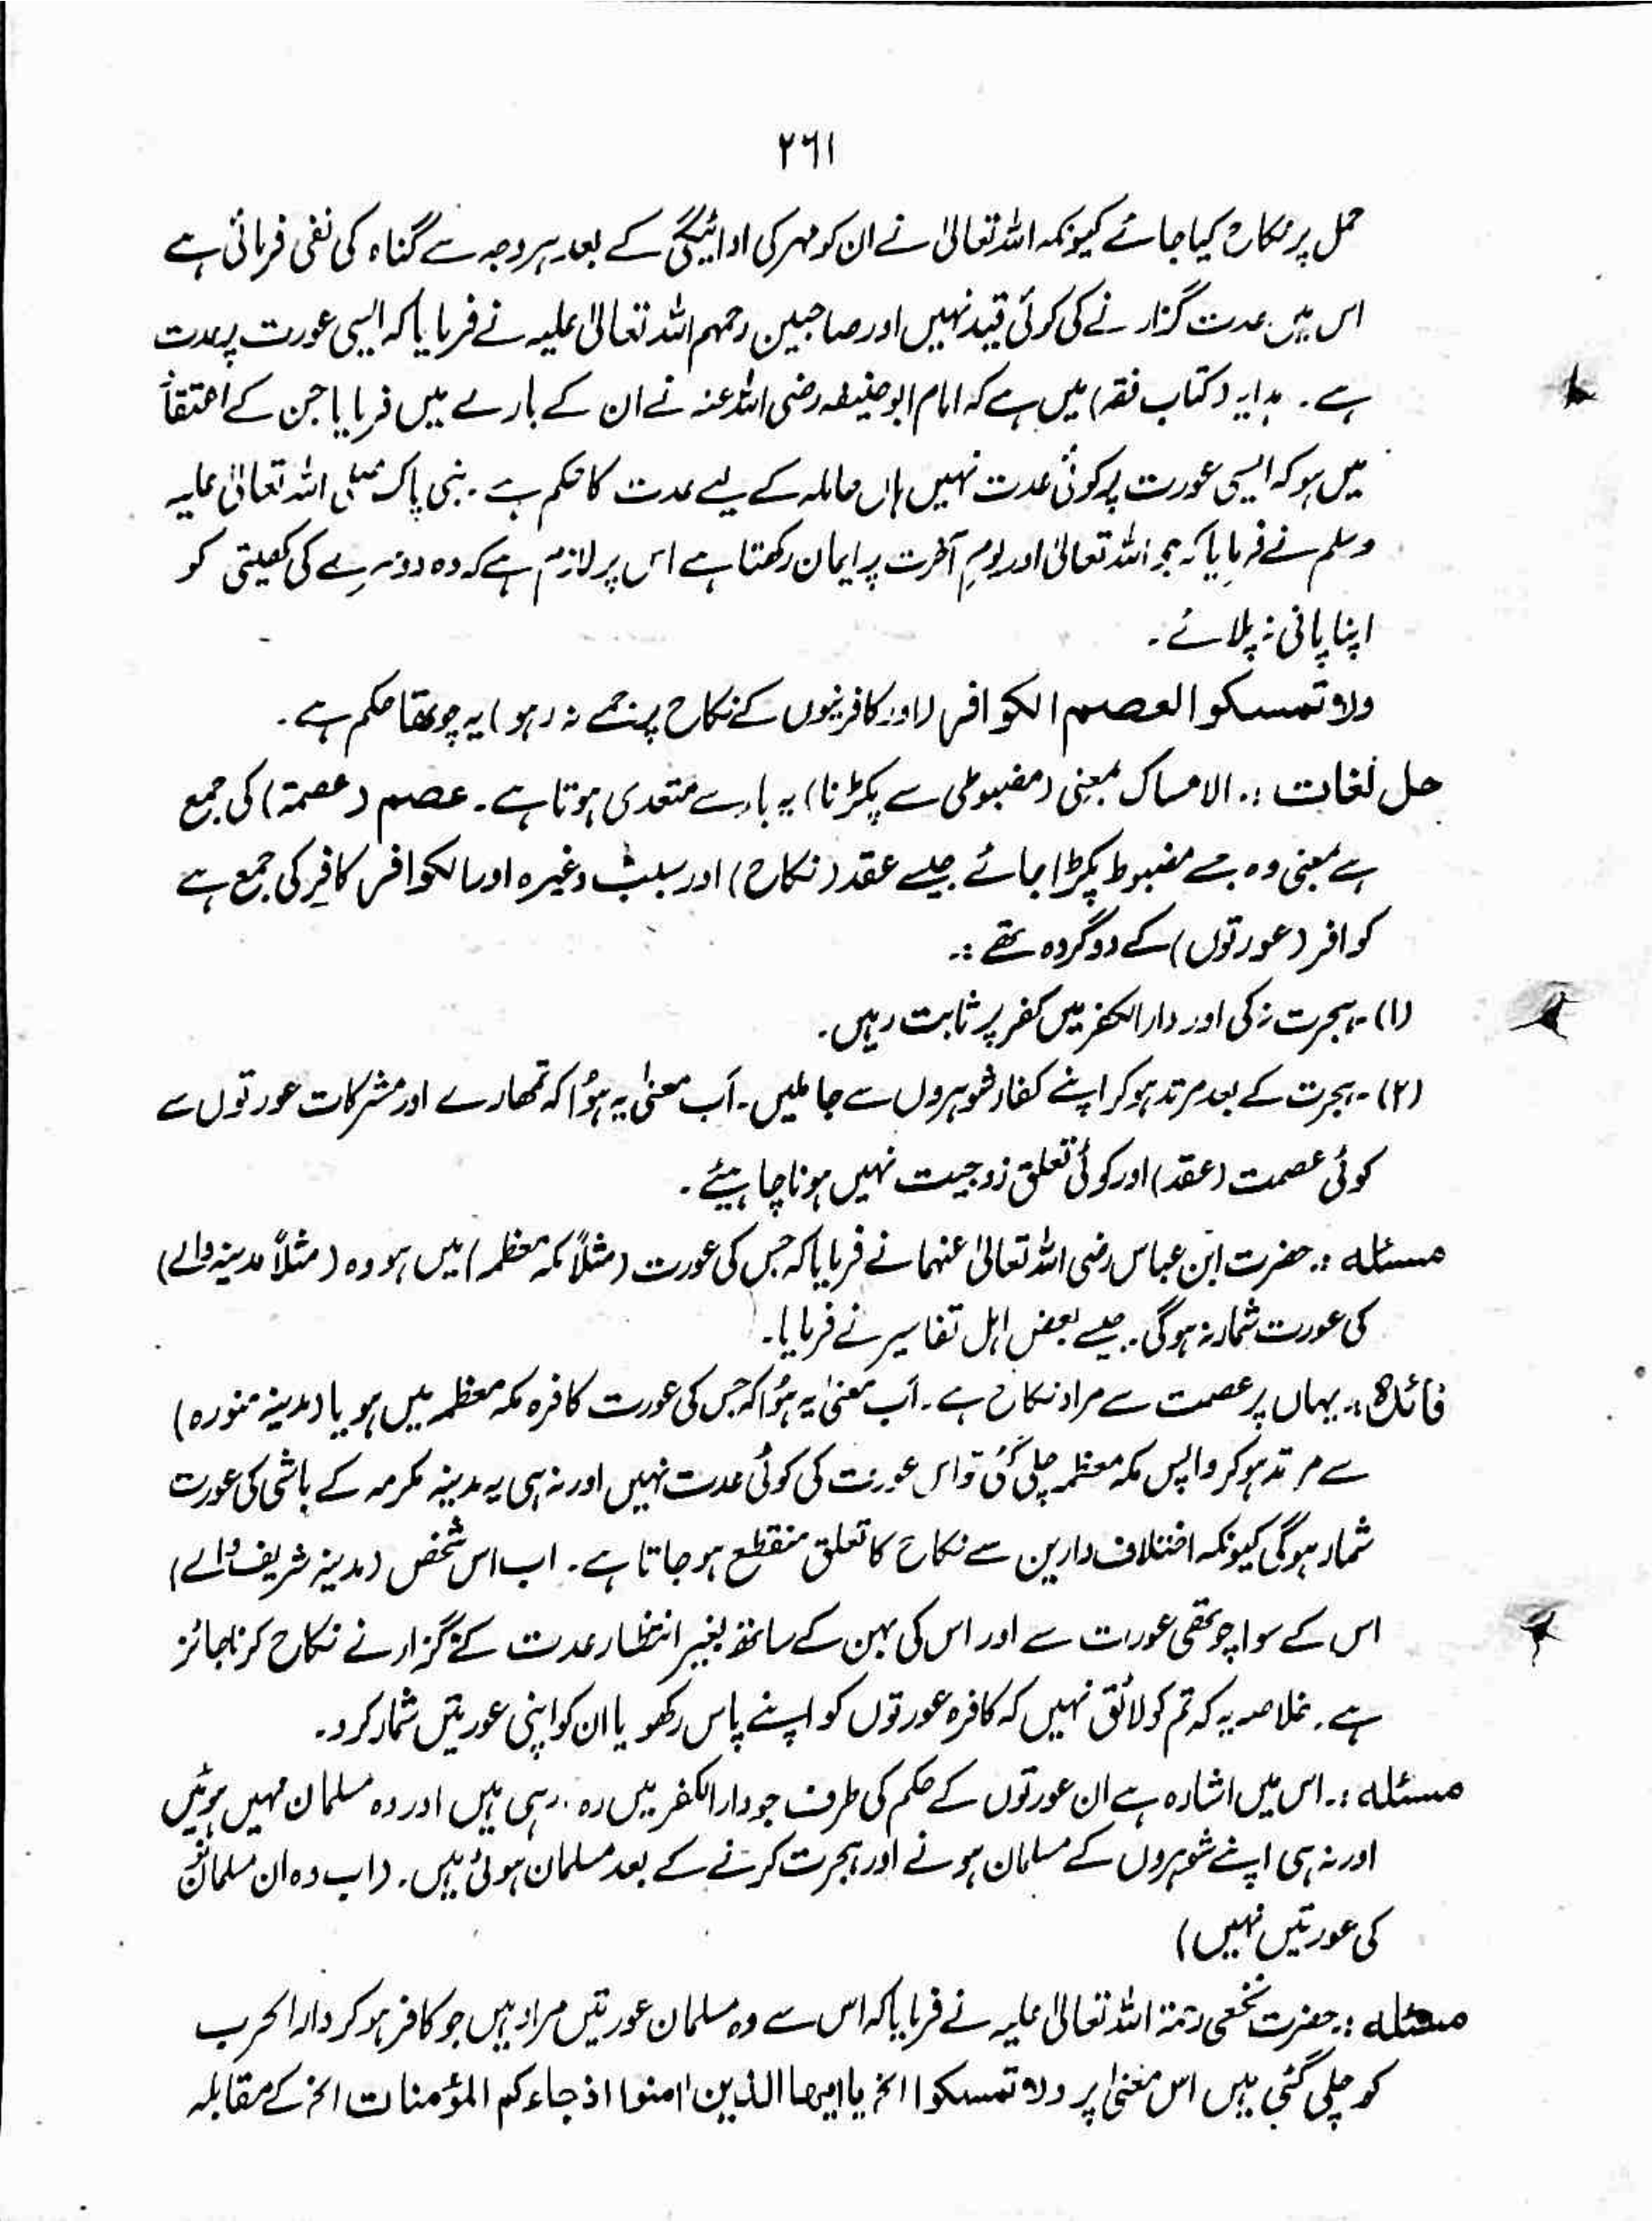 ۲۶۱
حمل پر نکاح کیا جائے کیونکہ اللہ تعالیٰ نے ان کو مہر کی ادائیگی کے بعد ہر وجہ سے گناہ کی نفی فرمائی ہے
اس میں عدت گزارنے کی کوئی قید نہیں اور صاحبین رحمہم اللہ تعالیٰ علیہ نے فرمایا کہ ایسی عورت پر عدت
ہے۔ ہدایہ (کتاب فقہ) میں ہے کہ امام ابو حنیفہ رضی اللہ عنہ نے ان کے بارے میں فرمایا جن کے اعتقاد
میں ہو کہ ایسی عورت پر کوئی عدت نہیں ہاں حاملہ کے لیے عدت کا حکم ہے۔ نبی پاک صلی اللہ تعالیٰ علیہ
وسلم نے فرمایا کہ جو اللہ تعالیٰ اور یومِ آخرت پر ایمان رکھتا ہے اس پر لازم ہے کہ وہ دوسرے کی کھیتی کو
اپنا پانی نہ پلائے۔
ولا تمسکوا العصم الکوافر (اور کافرینوں کے نکاح پر جمے نہ رہو) یہ چوتھا حکم ہے۔
حل لغات :۔ الامساک بمعنی (مضبوطی سے پکڑنا) یہ باء سے متعدی ہوتا ہے۔ عصم (عصمۃ) کی جمع
ہے بمعنی وہ جسے مضبوط پکڑا جائے جیسے عقد (نکاح) اور وغیرہ اور الکوافر کافِر کی جمع ہے
کوافر (عورتوں) کے دو گروہ تھے :۔
(۱)۔ ہجرت نہ کی اور دارالکفر میں کفر پر ثابت رہیں۔
(۲)۔ ہجرت کے بعد مرتد ہو کر اپنے کفار شوہروں سے جا ملیں۔ اَب معنیٰ یہ ہُوا کہ تمھارے اور مشرکات عورتوں سے
کوئی عصمت (عقد) اور کوئی تعلق زوجیت نہیں ہونا چاہیئے۔
مسئلہ :۔ حضرت ابن عباس رضی اللہ تعالیٰ عنہما نے فرمایا کہ جس کی عورت (مثلاً مکہ معظمہ) میں ہو وہ (مثلاً مدینہ والے)
کی عورت شمار نہ ہوگی۔ جیسے بعض اہل تفاسیر نے فرمایا۔
فائدہ :۔ یہاں پر عصمت سے مراد نکاح ہے۔ اَب معنیٰ یہ ہُوا کہ جس کی عورت کافرہ مکہ معظمہ میں ہو یا (مدینہ منورہ)
سے مرتد ہو کر واپس مکہ معظمہ چلی گئی تو اس عورت کی کوئی عدت نہیں اور نہ ہی یہ مدینہ مکرمہ کے باشی کی عورت
شمار ہوگی کیونکہ اختلاف دارین سے نکاح کا تعلق منقطع ہو جاتا ہے۔ اب اس شخص (مدینہ شریف والے)
اس کے سوا چوتھی عورت سے اور اس کی بہن کے ساتھ بغیر انتظار عدت کے گزارنے نکاح کرنا جائز
ہے۔ خلاصہ یہ کہ تم کو لائق نہیں کہ کافرہ عورتوں کو اپنے پاس رکھو یا ان کو اپنی عورتیں شمار کرو۔
مسئلہ :۔ اس میں اشارہ ہے ان عورتوں کے حکم کی طرف جو دارالکفر میں رہ رہی ہیں اور وہ مسلمان نہیں ہوئیں
اور نہ ہی اپنے شوہروں کے مسلمان ہونے اور ہجرت کرنے کے بعد مسلمان ہوئی ہیں۔ (اب وہ ان مسلمانوں
کی عورتیں نہیں)
مسئلہ :۔ حضرت نخعی رحمۃ اللہ تعالیٰ علیہ نے فرمایا کہ اس سے وہ مسلمان عورتیں مراد ہیں جو کافر ہو کر دار الحرب
کو چلی گئی ہیں اس معنیٰ پر ولا تمسکوا الخ یاایھا الذین امنوا اذ جاءکم المؤمنات الخ کے مقابلہ